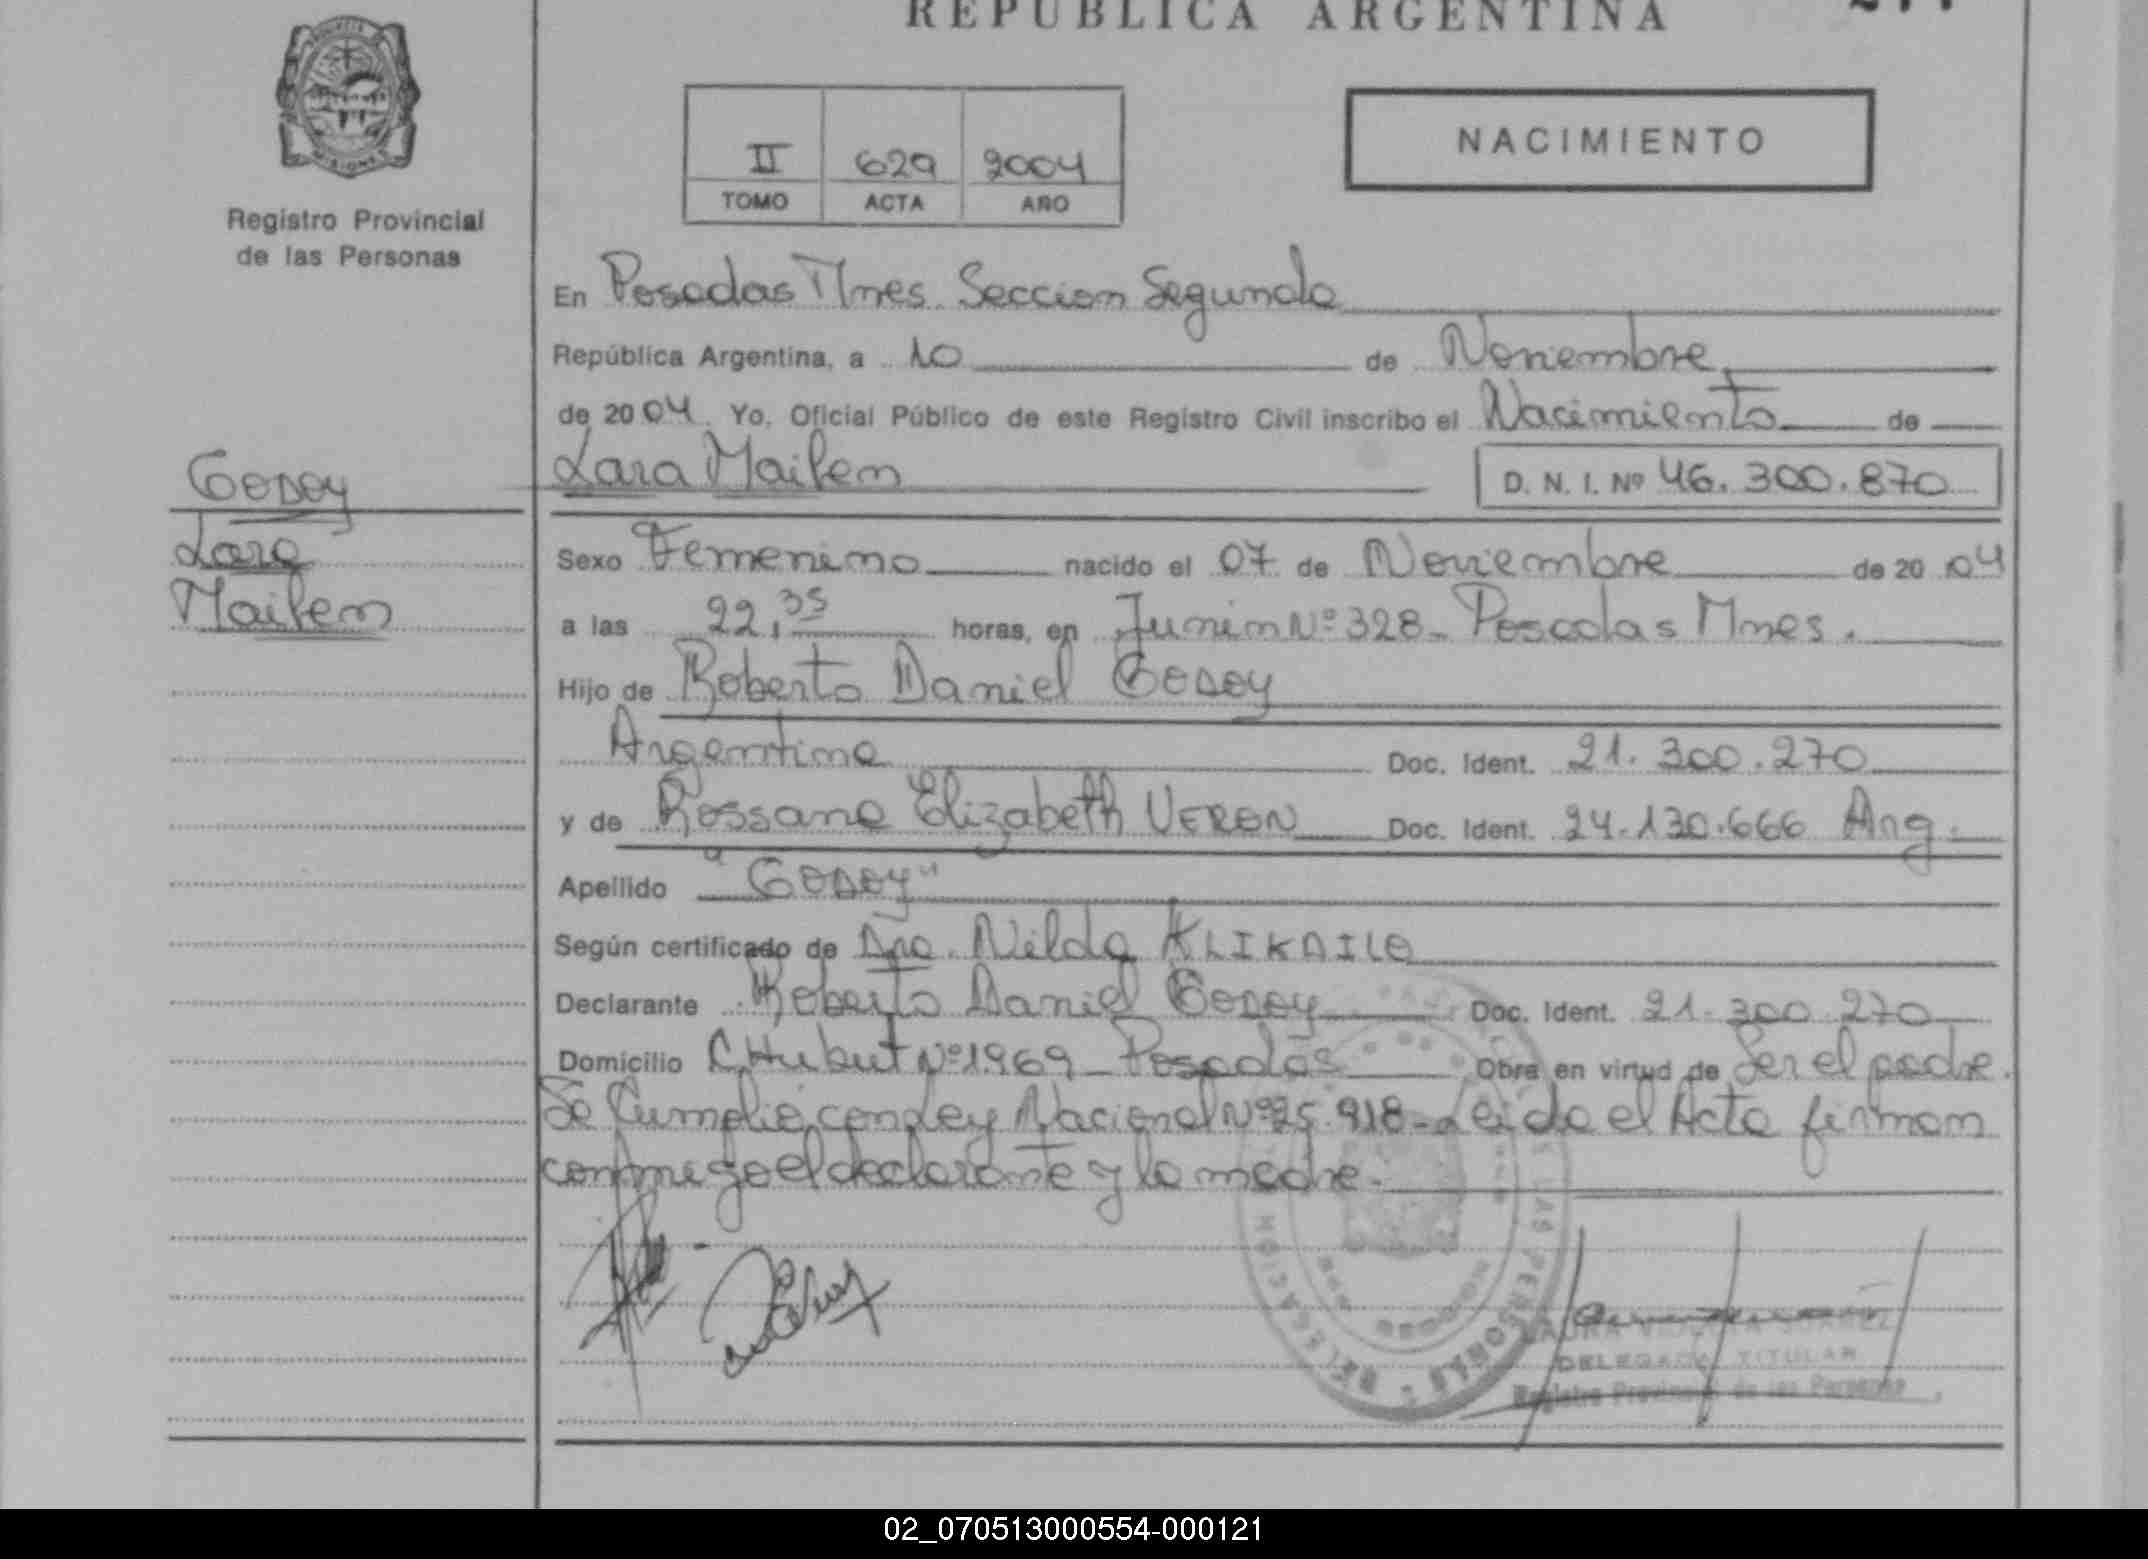 REPUBLICA ARGENTINA
MISIONES
Registro Provincial
de las Personas
II 629 2004
TOMO ACTA AÑO
NACIMIENTO
En Posadas Mnes. Seccion Segunda
República Argentina, a 10 de Noviembre
de 2004. Yo, Oficial Público de este Registro Civil inscribo el Nacimiento de
Lara Mailen D. N. I. Nº 46.300.870
GODOY
Lara
Mailen
Sexo Femenino nacido el 07 de Noviembre de 2004
a las 22,35 horas, en Junin Nº 328 - Posadas Mnes.
Hijo de Roberto Daniel GODOY
Argentino Doc. Ident. 21.300.270
y de Rossana Elizabeth VERON Doc. Ident. 24.130.666 Arg.
Apellido "GODOY"
Según certificado de Dra. Nilda
Declarante Roberto Daniel GODOY Doc. Ident. 21.300.270
Domicilio CHubut Nº 1969 - Posadas Obra en virtud de Ser el padre.
Se Cumplio con Ley Nacional Nº 25.918 - Leida el Acta firman
conmigo el declarante y la madre.
DELEGADA TITULAR
Registro Provincial de las Personas
02_070513000554-000121